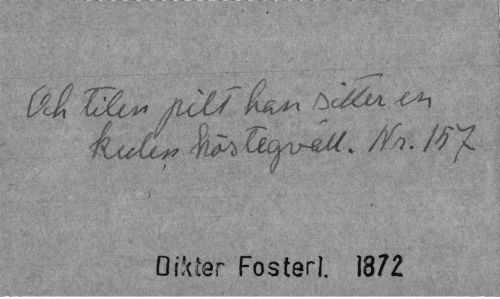 Och liten pilt han sitter en
kulen hösteqväll. Nr. 157
Dikter Fosterl. 1872